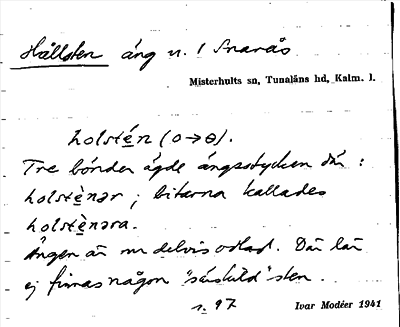 Hållsten äng u. 1 Snarås
Misterhults sn, Tunaläns hd, Kalm. l.
holstén (o→ɵ).
Tre bönder ägde ängsstycken där :
holstènər ; bitarna kallades
holstènəra.
Ängen är nu delvis odlad. Där lär
ej finnas någon "särskild" sten.
s. 97
Ivar Modéer 1941